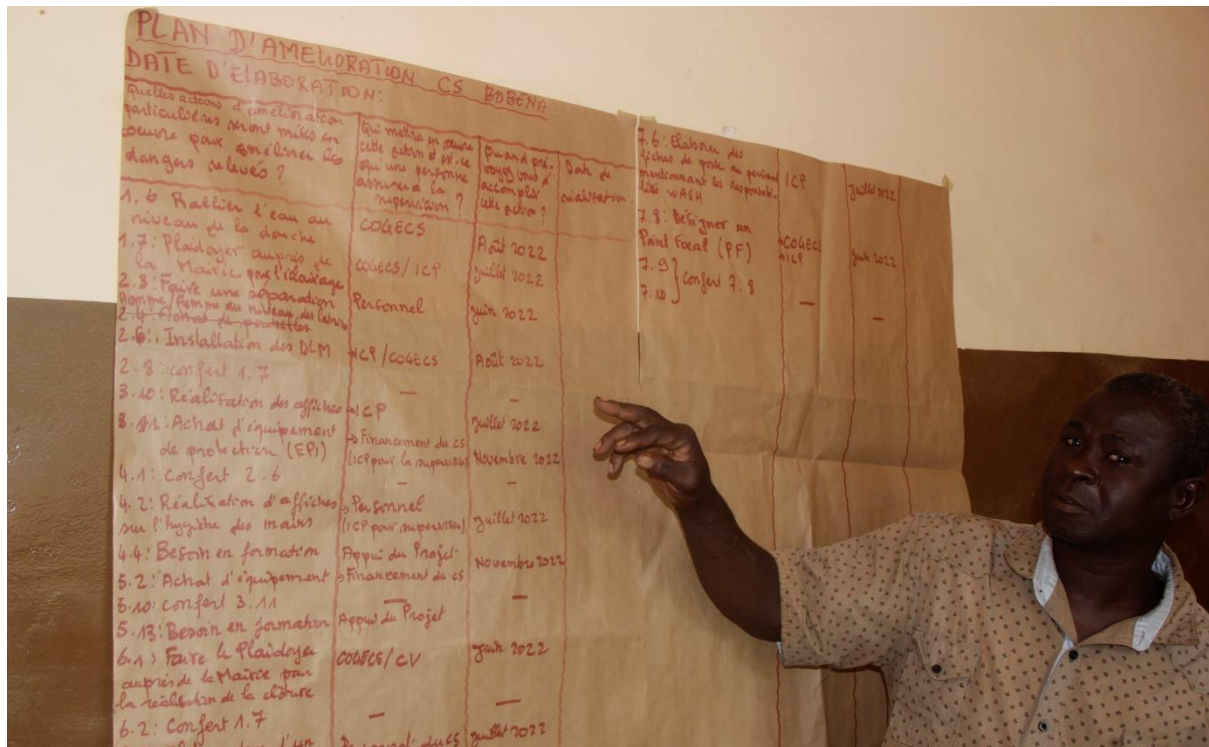 PLAN D'AMELIORATION CS BOBENA
DATE D'ELABORATION:
Quelles actions d'amélioration
particulières seront mises en
oeuvre pour améliorer les
dangers relevés ?
Qui mettra en oeuvre
cette action et est-ce
qu'une personne
assurera la
supervision ?
Quand pré-
voyez vous d'
accomplir
cette action ?
Date de
réalisation
1.6 Rallier l'eau au
niveau de la douche
COGECS
Août 2022
1.7: Plaidoyer auprès de
la Mairie pour l'éclairage
COGECS/ICP
Juillet 2022
2.3: Faire une séparation
Homme/Femme au niveau des latrines
Personnel
Juin 2022
2.4: Achat de poubelles
2.6: Installation des DLM
ICP/COGECS
Août 2022
2.8: confert 1.7
—
—
3.10: Réalisation des affiches
→ICP
Juillet 2022
3.11: Achat d'équipement
de protection (EPI)
→Financement du CS
(ICP pour la supervision)
Novembre 2022
4.1: Confert 2.6
—
—
4.2: Réalisation d'affiches
sur l'hygiène des mains
→Personnel
(ICP pour supervision)
Juillet 2022
4.4: Besoin en formation
Appui du Projet
Novembre 2022
5.2: Achat d'équipement
→Financement du CS
5.10: confert 3.11
—
—
5.13: Besoin en formation
Appui du Projet
6.1: Faire le Plaidoyer
auprès de la Mairie pour
la réalisation de la clôture
COGECS/CV
Juin 2022
6.2: Confert 1.7
—
—
d'un
Personnel du CS
Juillet 2022
7.6: Elaborer des
fiches de poste au personnel
mentionnant les responsabi-
lités WASH
ICP
Juillet 2022
7.8: Désigner un
Point Focal (PF)
→COGECS
→ICP
Juin 2022
7.9
7.10 } Confert 7.8
—
—